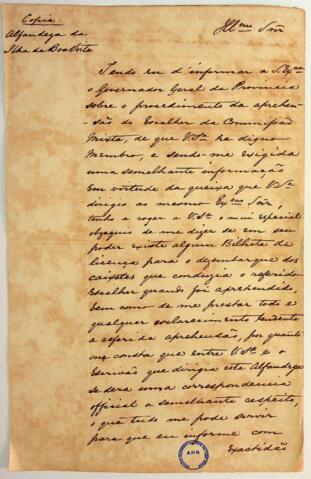 Copia
Alfandega da
Ilha da Boa Vista
Illmo Snr
Tendo eu d'informar a S. Exca
o Governador Geral da Provincia
sobre o procedimento da aprehen-
são do Escalher da Commissão
Mixta, de que VSa he digno
Membro, e sendo-me exigida
uma semelhante informação
em virtude da queixa que VSa
dirigio ao mesmo Exmo Snr,
tenho a rogar a VSa o mui especial
obzequio de me dizer se em seu
poder existe algum Bilhete de
licença para o desembarque dos
caixotes que conduzia o referido
Escalher quando foi aprehendido,
bem como de me prestar todo e
qualquer esclarecimento tendente
a referida aprehensão, por quanto
me consta que entre VSa e o
Escrivão que dirigia esta Alfandega
se dera uma correspondencia
official a semelhante respeito,
o que tudo me pode servir
para que eu informe com
exactidão
AHN